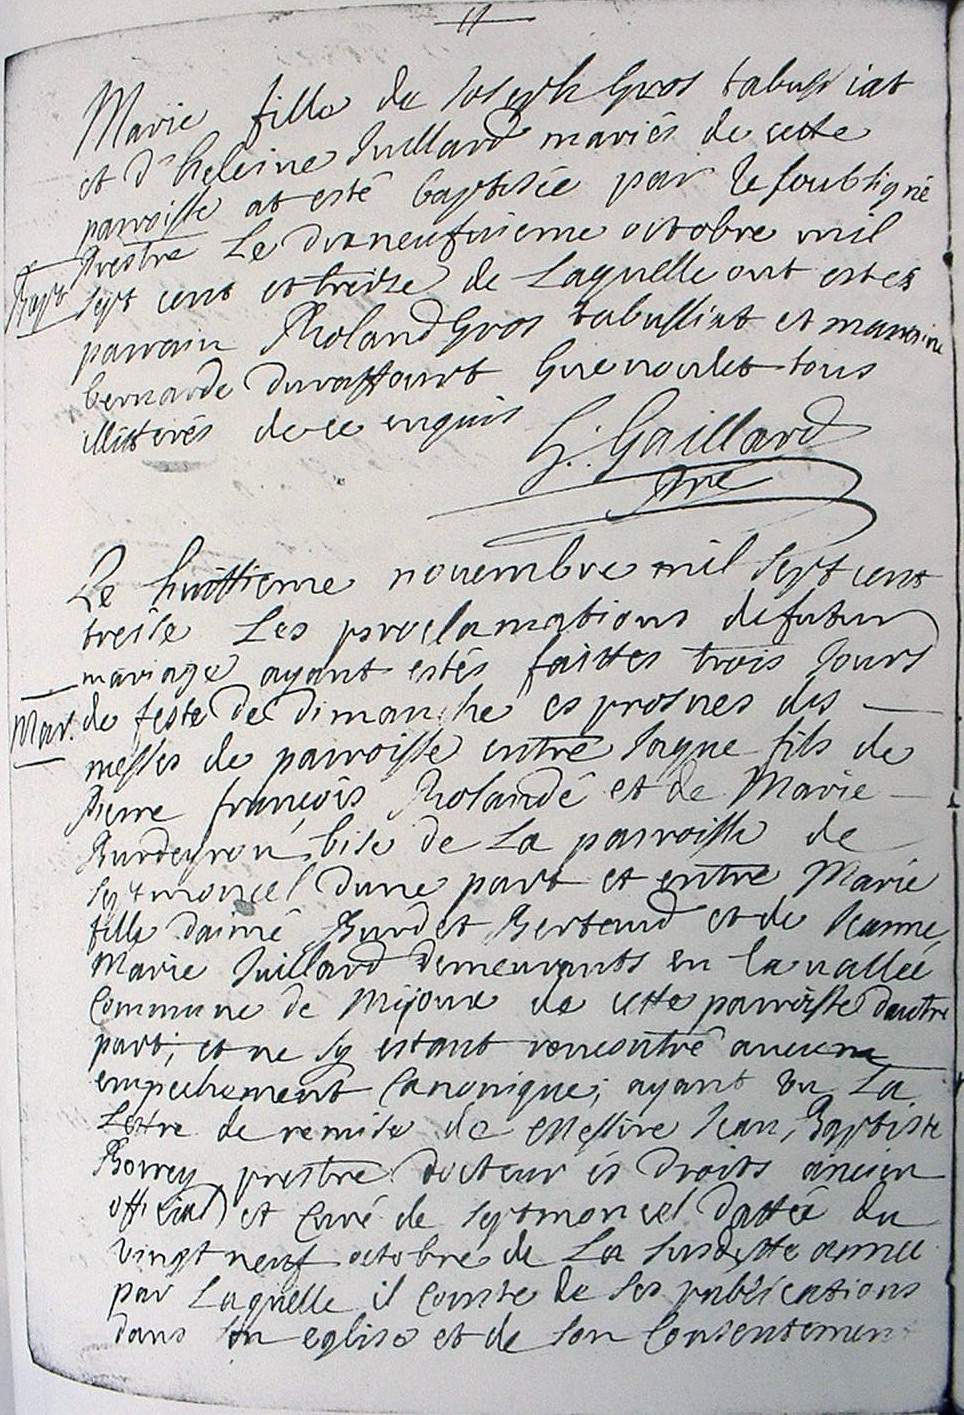 11
Marie fille de Joseph Gros tabussiat
et d'heleine Juillard mariés de cette
parroisse at esté baptisée par le soubsigné
prestre Le dixneufvieme octobre mil
Bapt
sept cent et treize de Laquelle ont estés
parrain Rholand Gros tabussiat et marraine
bernarde Duraffourt Grenoulet tous
illitterés de ce enquis
G. Gaillard
pre
Le huittieme novembre mil sept cent
treise Les proclamations de futur
mariage ayant estés faittes trois Jours
Mar.
de feste de dimanche es prosnes des
messes de parroisse entre Jaque fils de
Pierre françois Rholandé et de Marie
bise de La parroisse de
septmoncel d'une part et entre Marie
fille daimé Burdet Berteud et de Jeanne
Marie Juillard demeurants en la vallée
Commune de Mijoux de cette parroisse dautre
part; et ne sy estant rencontré aucun
empechement Canonique; ayant vu La
Lettre de remise de Messire Jean Baptiste
prestre docteur és droits ancien
official et Curé de septmoncel dattée du
vingt neuf octobre de La susditte année
par Laquelle il Conste de ses publications
dans son eglise et de son Consentement